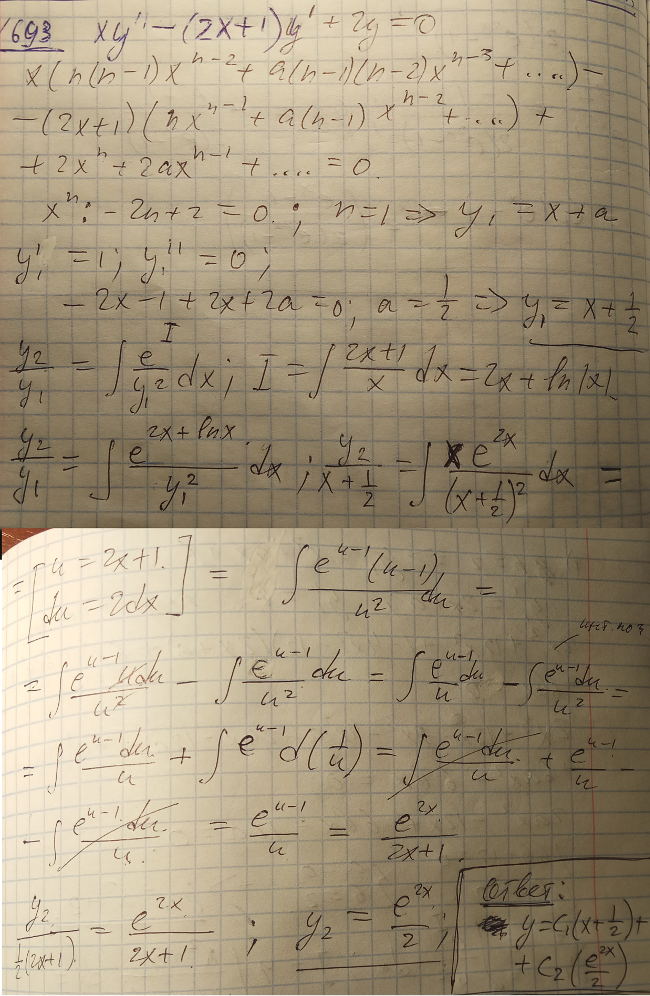 693 xy'' - (2x+1)y' + 2y = 0
x(n(n-1)x^{n-2} + a(n-1)(n-2)x^{n-3} + ....) -
-(2x+1)(nx^{n-1} + a(n-1)x^{n-2} + ....) +
+ 2x^n + 2ax^{n-1} + .... = 0.
x^n: -2n+2 = 0; n=1 => y_1 = x+a
y_1' = 1; y_1'' = 0;
-2x-1+2x+2a=0; a = 1/2 => y_1 = x + 1/2
y_2/y_1 = ∫ e^I/y_1^2 dx; I = ∫ (2x+1)/x dx = 2x + ln|x|
y_2/y_1 = ∫ e^{2x+lnx}/y_1^2 dx; y_2/(x+1/2) = ∫ xe^{2x}/(x+1/2)^2 dx =
= [u = 2x+1. du = 2dx] = ∫ e^{u-1}(u-1)/u^2 du =
= ∫ e^{u-1}udu/u^2 - ∫ e^{u-1}/u^2 du = ∫ e^{u-1}du/u - ∫ e^{u-1}du/u^2 =
= ∫ e^{u-1}du/u + ∫ e^{u-1}d(1/u) = ∫ e^{u-1}du/u + e^{u-1}/u -
- ∫ e^{u-1}du/u = e^{u-1}/u = e^{2x}/(2x+1).
y_2/(1/2(2x+1)) = e^{2x}/(2x+1); y_2 = e^{2x}/2;
Ответ:
y = C_1(x+1/2) +
+ C_2(e^{2x}/2)